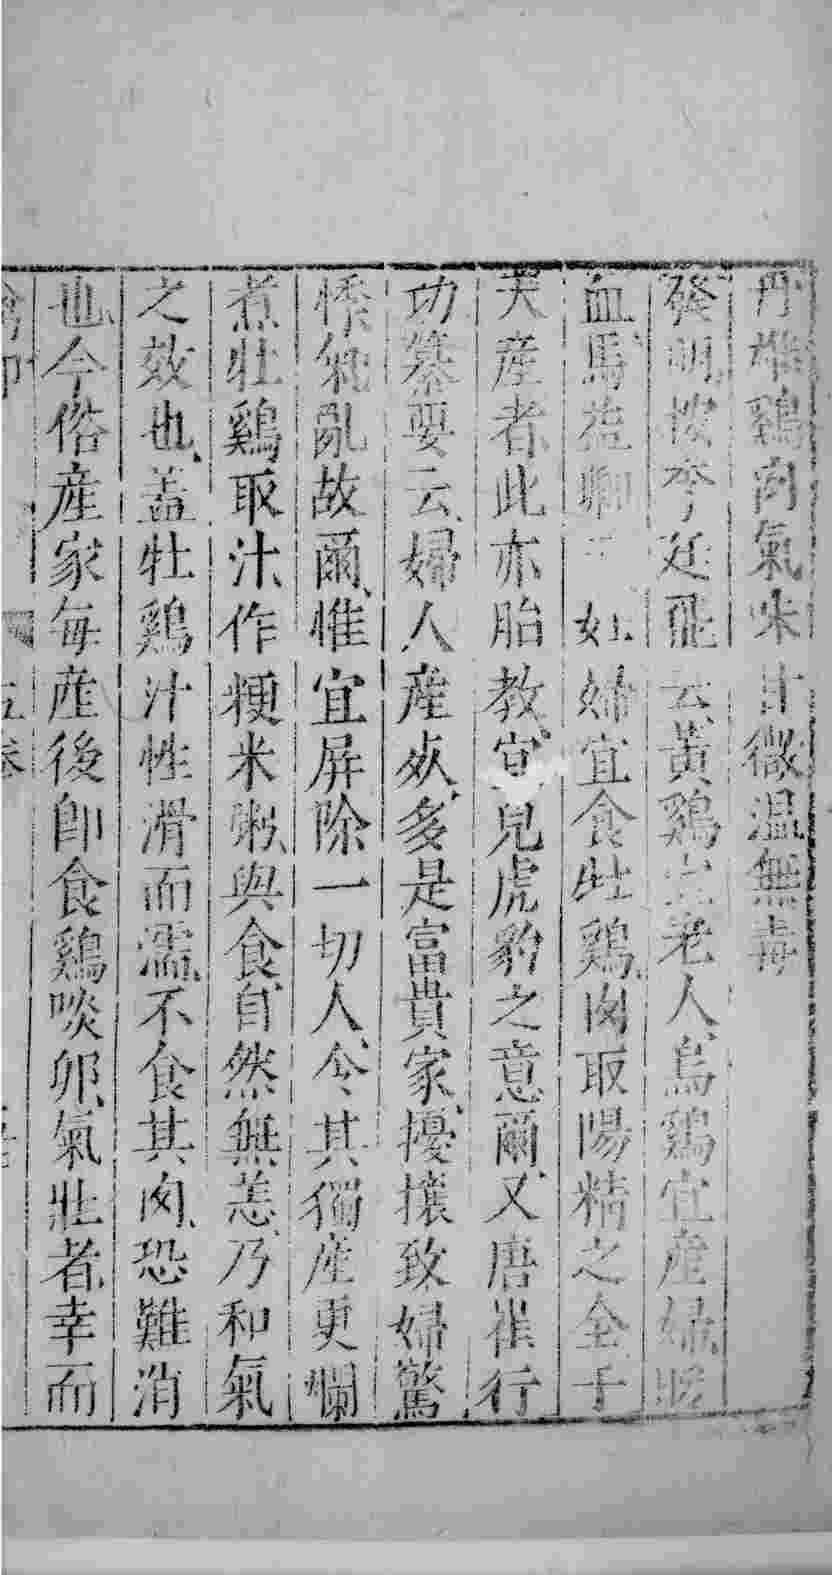 丹雄鷄肉氣味甘微温無毒
發明按李廷飛云黃鷄宜老人烏鷄宜産婦暖
血馬益卿云妊婦宜食牡鷄肉取陽精之全于
天産者此亦胎教宜見虎豹之意爾又唐崔行
功纂要云婦人産死多是富貴家擾攘致婦驚
悸氣亂故爾惟宜屏除一切人令其獨産更爛
煮牡鷄取汁作粳米粥與食自然無恙乃和氣
之效也蓋牡鷄汁性滑而濡不食其肉恐難消
也今俗産家每産後卽食鷄啖卵氣壯者幸而
五卷